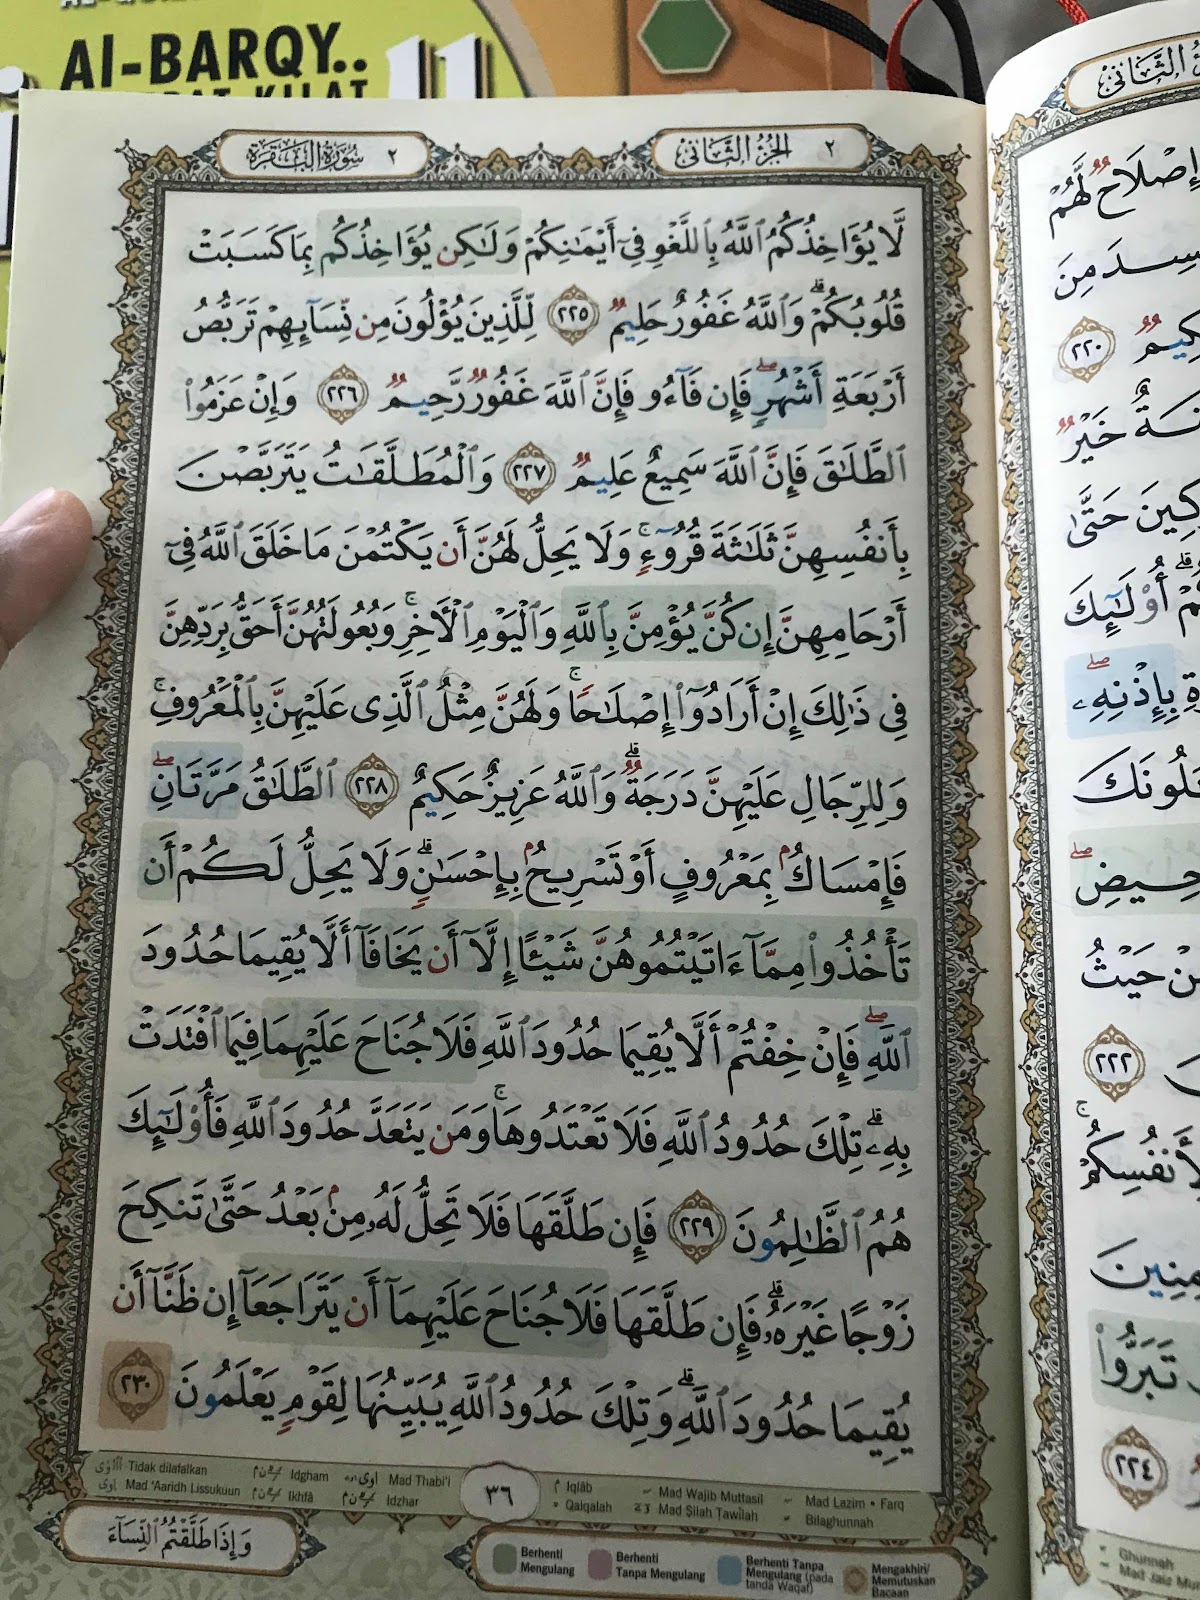 Al-BARQY..
الجزء الثاني ٢
٢ سورة البقرة
لَّا يُؤَاخِذُكُمُ ٱللَّهُ بِٱللَّغْوِ فِىٓ أَيْمَـٰنِكُمْ وَلَـٰكِن يُؤَاخِذُكُم بِمَا كَسَبَتْ
قُلُوبُكُمْ ۗ وَٱللَّهُ غَفُورٌ حَلِيمٌ ٢٢٥ لِّلَّذِينَ يُؤْلُونَ مِن نِّسَآئِهِمْ تَرَبُّصُ
أَرْبَعَةِ أَشْهُرٍ ۖ فَإِن فَآءُو فَإِنَّ ٱللَّهَ غَفُورٌ رَّحِيمٌ ٢٢٦ وَإِنْ عَزَمُوا۟
ٱلطَّلَـٰقَ فَإِنَّ ٱللَّهَ سَمِيعٌ عَلِيمٌ ٢٢٧ وَٱلْمُطَلَّقَـٰتُ يَتَرَبَّصْنَ
بِأَنفُسِهِنَّ ثَلَـٰثَةَ قُرُوٓءٍ ۚ وَلَا يَحِلُّ لَهُنَّ أَن يَكْتُمْنَ مَا خَلَقَ ٱللَّهُ فِىٓ
أَرْحَامِهِنَّ إِن كُنَّ يُؤْمِنَّ بِٱللَّهِ وَٱلْيَوْمِ ٱلْـَٔاخِرِ ۚ وَبُعُولَتُهُنَّ أَحَقُّ بِرَدِّهِنَّ
فِى ذَٰلِكَ إِنْ أَرَادُوٓا۟ إِصْلَـٰحًا ۚ وَلَهُنَّ مِثْلُ ٱلَّذِى عَلَيْهِنَّ بِٱلْمَعْرُوفِ ۚ
وَلِلرِّجَالِ عَلَيْهِنَّ دَرَجَةٌ ۗ وَٱللَّهُ عَزِيزٌ حَكِيمٌ ٢٢٨ ٱلطَّلَـٰقُ مَرَّتَانِ ۖ
فَإِمْسَاكٌۢ بِمَعْرُوفٍ أَوْ تَسْرِيحٌۢ بِإِحْسَـٰنٍ ۗ وَلَا يَحِلُّ لَكُمْ أَن
تَأْخُذُوا۟ مِمَّآ ءَاتَيْتُمُوهُنَّ شَيْـًٔا إِلَّآ أَن يَخَافَآ أَلَّا يُقِيمَا حُدُودَ
ٱللَّهِ ۖ فَإِنْ خِفْتُمْ أَلَّا يُقِيمَا حُدُودَ ٱللَّهِ فَلَا جُنَاحَ عَلَيْهِمَا فِيمَا ٱفْتَدَتْ
بِهِۦ ۗ تِلْكَ حُدُودُ ٱللَّهِ فَلَا تَعْتَدُوهَا ۚ وَمَن يَتَعَدَّ حُدُودَ ٱللَّهِ فَأُو۟لَـٰٓئِكَ
هُمُ ٱلظَّـٰلِمُونَ ٢٢٩ فَإِن طَلَّقَهَا فَلَا تَحِلُّ لَهُۥ مِنۢ بَعْدُ حَتَّىٰ تَنكِحَ
زَوْجًا غَيْرَهُۥ ۗ فَإِن طَلَّقَهَا فَلَا جُنَاحَ عَلَيْهِمَآ أَن يَتَرَاجَعَآ إِن ظَنَّآ أَن
يُقِيمَا حُدُودَ ٱللَّهِ ۗ وَتِلْكَ حُدُودُ ٱللَّهِ يُبَيِّنُهَا لِقَوْمٍ يَعْلَمُونَ ٢٣٠
Tidak dilafalkan Idgham Mad Thabi'i
Mad 'Aaridh Lissukuun Ikhfâ Idzhar
٣٦
Iqlâb Mad Wajib Muttasil Mad Lazim • Farq
Qalqalah Mad Shilah Tawîlah Bilaghunnah
وَإِذَا طَلَّقْتُمُ ٱلنِّسَآءَ
Berhenti Mengulang
Berhenti Tanpa Mengulang
Berhenti Tanpa Mengulang (pada tanda Waqaf)
Mengakhiri/ Memutuskan Bacaan
الثاني
إِصْلَاحٌ لَّهُمْ
٢٢٠
خَيْرٌ
حَتَّىٰ
أُو۟لَـٰٓئِكَ
بِإِذْنِهِۦ ۖ
حَيْثُ
٢٢٢
لِأَنفُسِكُمْ
تَبَرُّوا۟
٢٢٤
Ghunnah